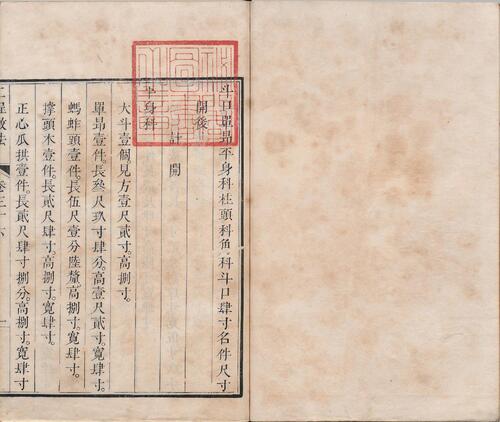 斗口單昂平身科柱頭科角科斗口肆寸名件尺寸
開後
計開
平身科
大斗壹個見方壹尺貳寸。高捌寸。
單昂壹件。長叄尺玖寸肆分。高壹尺貳寸。寬肆寸。
螞蚱頭壹件。長伍尺壹分陸釐。高捌寸。寬肆寸。
撑頭木壹件。長貳尺肆寸。高捌寸。寬肆寸。
正心瓜拱壹件。長貳尺肆寸捌分。高捌寸。寬肆寸
工程做法 卷三十六 一